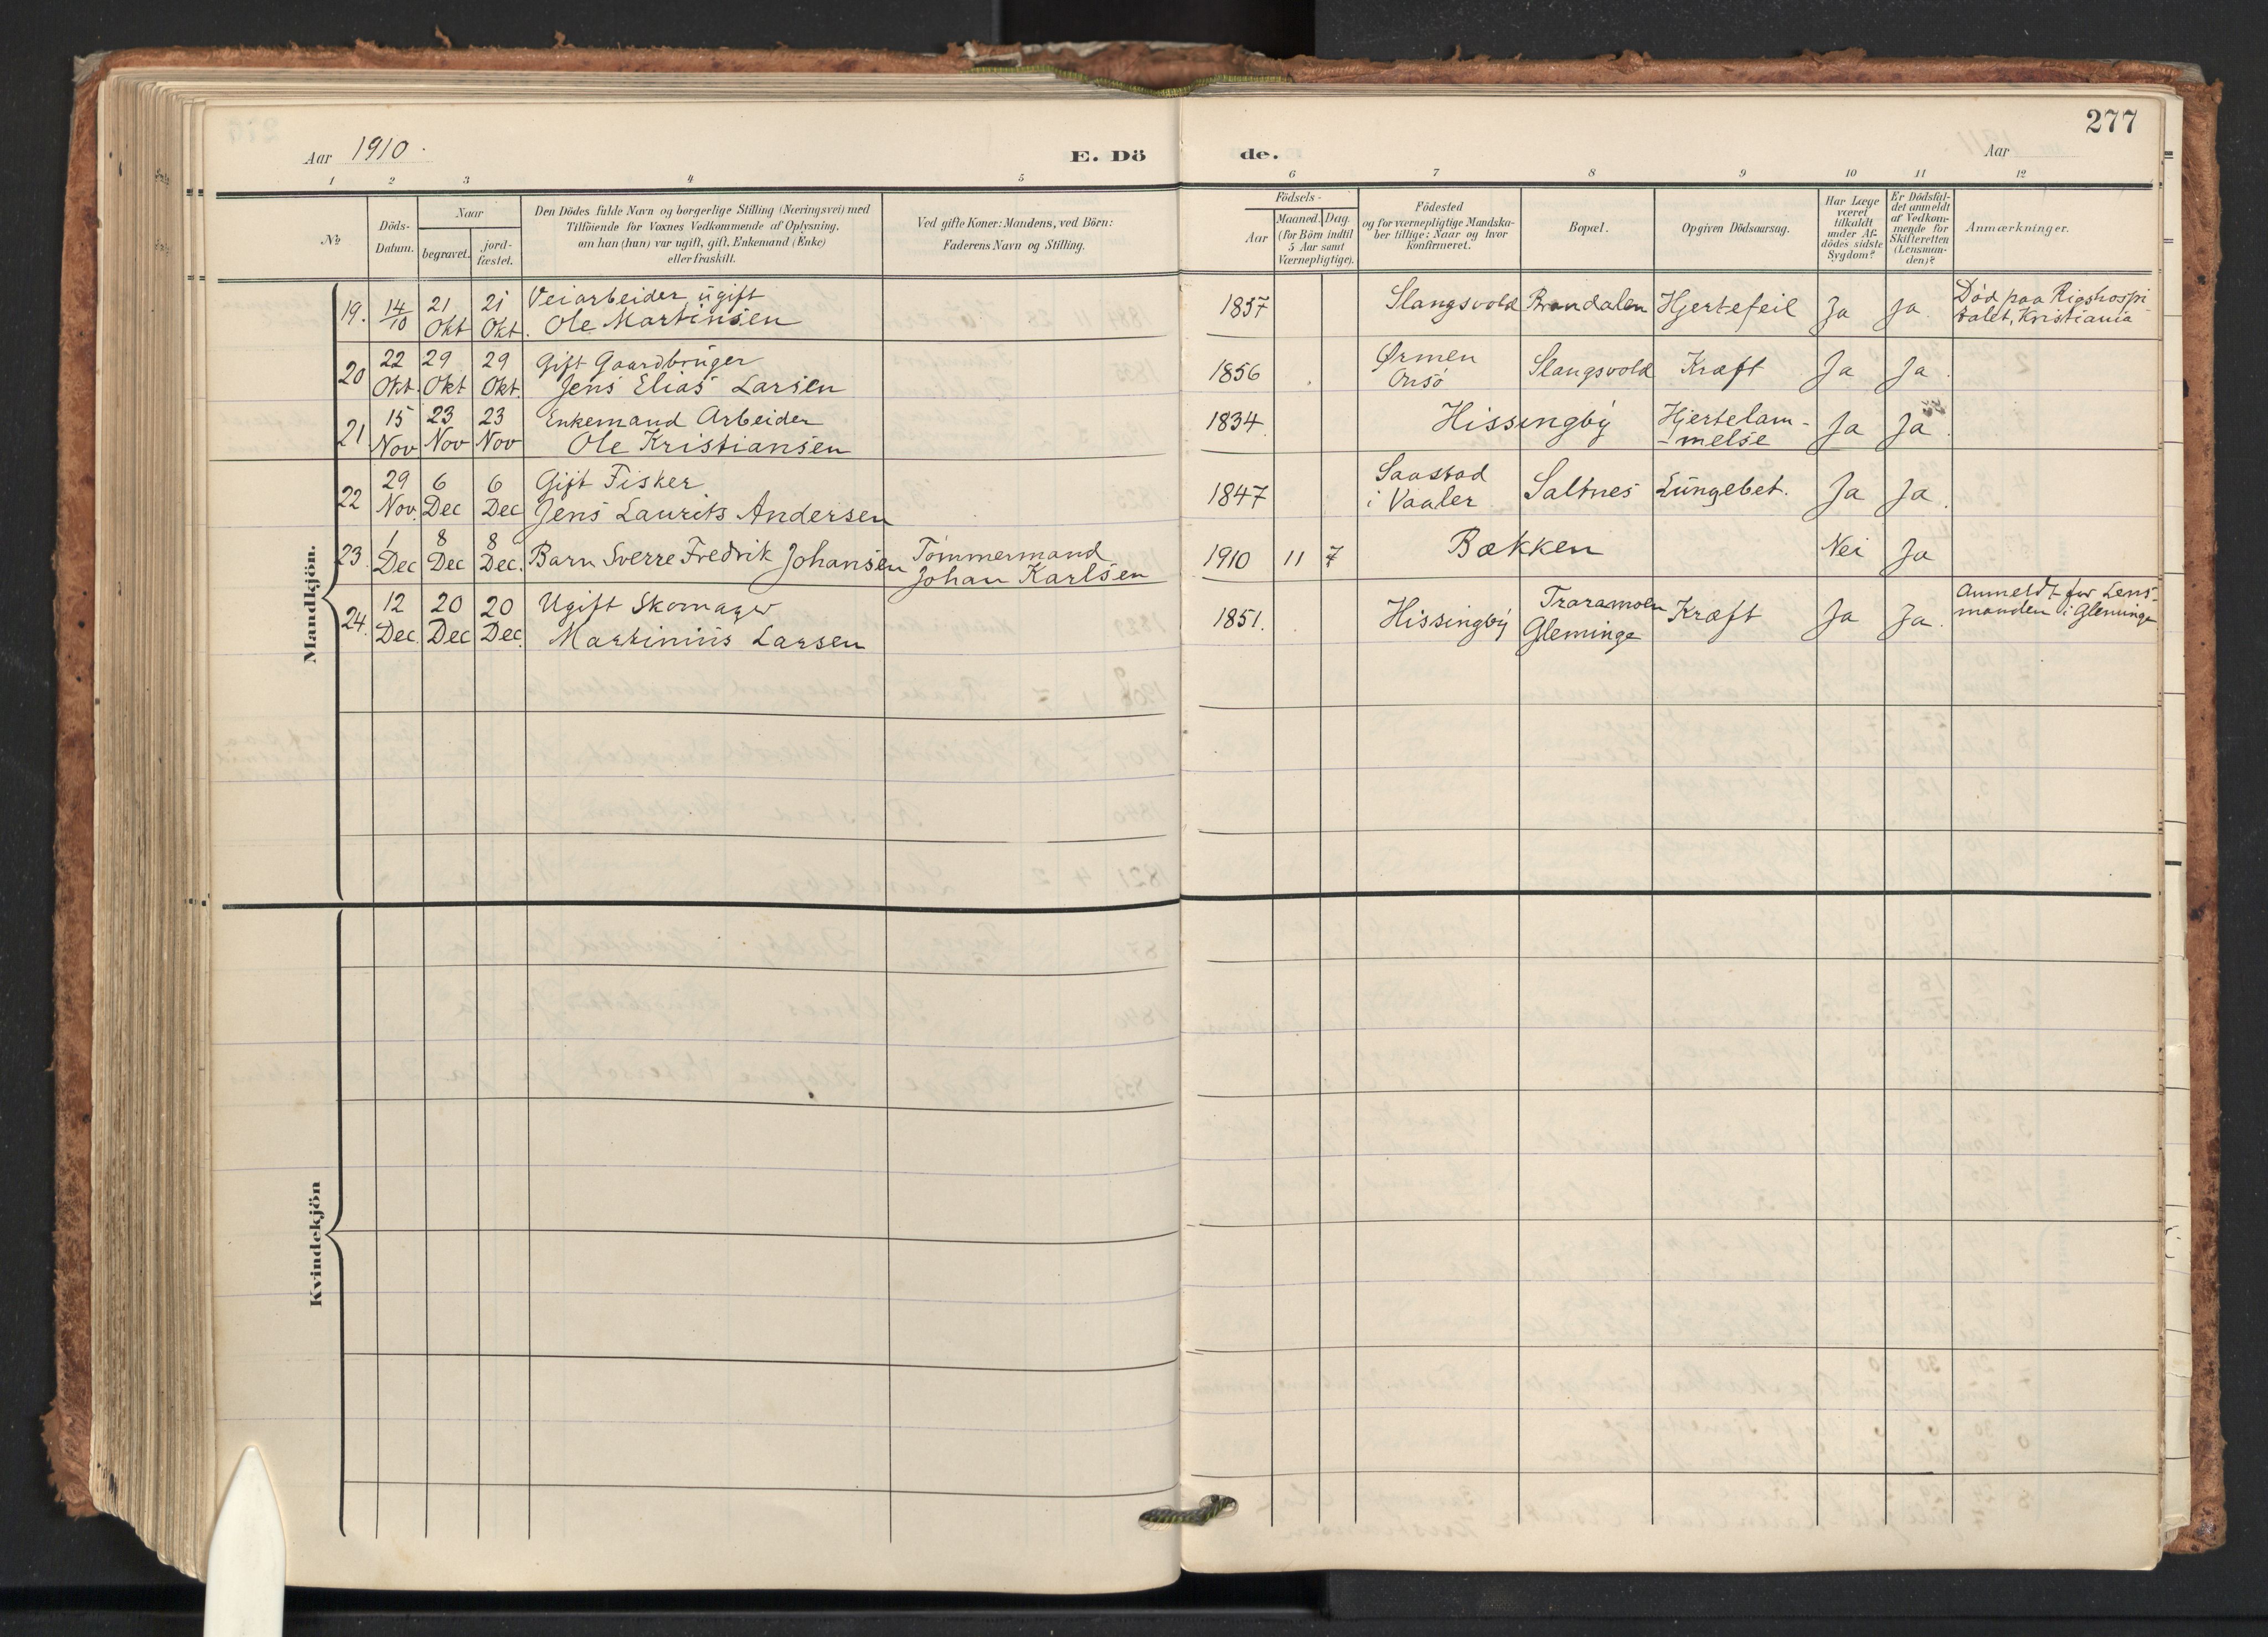 Aar 1910.
E. Dö
de.
Aar
277
1 2 3 4 5 6 7 8 9 10 11 12
№
Döds-
Datum.
Naar
begravet.
jord-
fæstet.
Den Dödes fulde Navn og borgerlige Stilling (Næringsvei) med
Tilföiende for Voxnes Vedkommende af Oplysning,
om han (hun) var ugift, gift, Enkemand (Enke)
eller fraskilt.
Ved gifte Koner: Mandens, ved Börn:
Faderens Navn og Stilling.
Födsels-
Aar
Maaned. Dag.
(for Börn indtil
5 Aar samt
Værnepligtige).
Födested
og for værnepligtige Mandska-
ber tillige: Naar og hvor
konfirmeret.
Bopæl.
Opgiven Dödsaarsag.
Har Læge
været
tilkaldt
under Af-
dödes sidste
Sygdom?
Er Dödsfal-
det anmeldt
af Vedkom-
mende for
Skifteretten
(Lensman-
den)?
Anmærkninger.
Mandkjön.
19. 14/10 21 Okt 21 Okt. Veiarbeider, ugift
Ole Martinsen
1837 Slangsvold Brandalen Hjertefeil Ja Ja Död paa Rigshospi
talet, Kristiania
20 22 Okt. 29 Okt 29 Okt. Gift Gaardbruger
Jens Elias Larsen
1856 Ørmen
Onsö
Slangsvold Kræft Ja Ja.
21 15 Nov 23 Nov 23 Nov Enkemand Arbeider
Ole Kristiansen
1834. Hissingby Hjertelam-
-melse
Ja Ja.
22 29 Nov. 6 Dec 6 Dec Gift Fisker
Jens Laurits Andersen
1847 Saastad
i Vaaler
Saltnes Lungebet. Ja Ja.
23. 1 Dec 8 Dec 8 Dec. Barn Sverre Fredrik Johansen Tömmermand
Johan Karlsen
1910 11 7 Bækken Nei Ja
24. 12 Dec. 20 Dec 20 Dec. Ugift Skomager
Martinius Larsen
1851. Hissingby
Glemminge
Kræft Ja Ja. Anmeldt for Lens-
manden i Glemminge
Kvindekjön